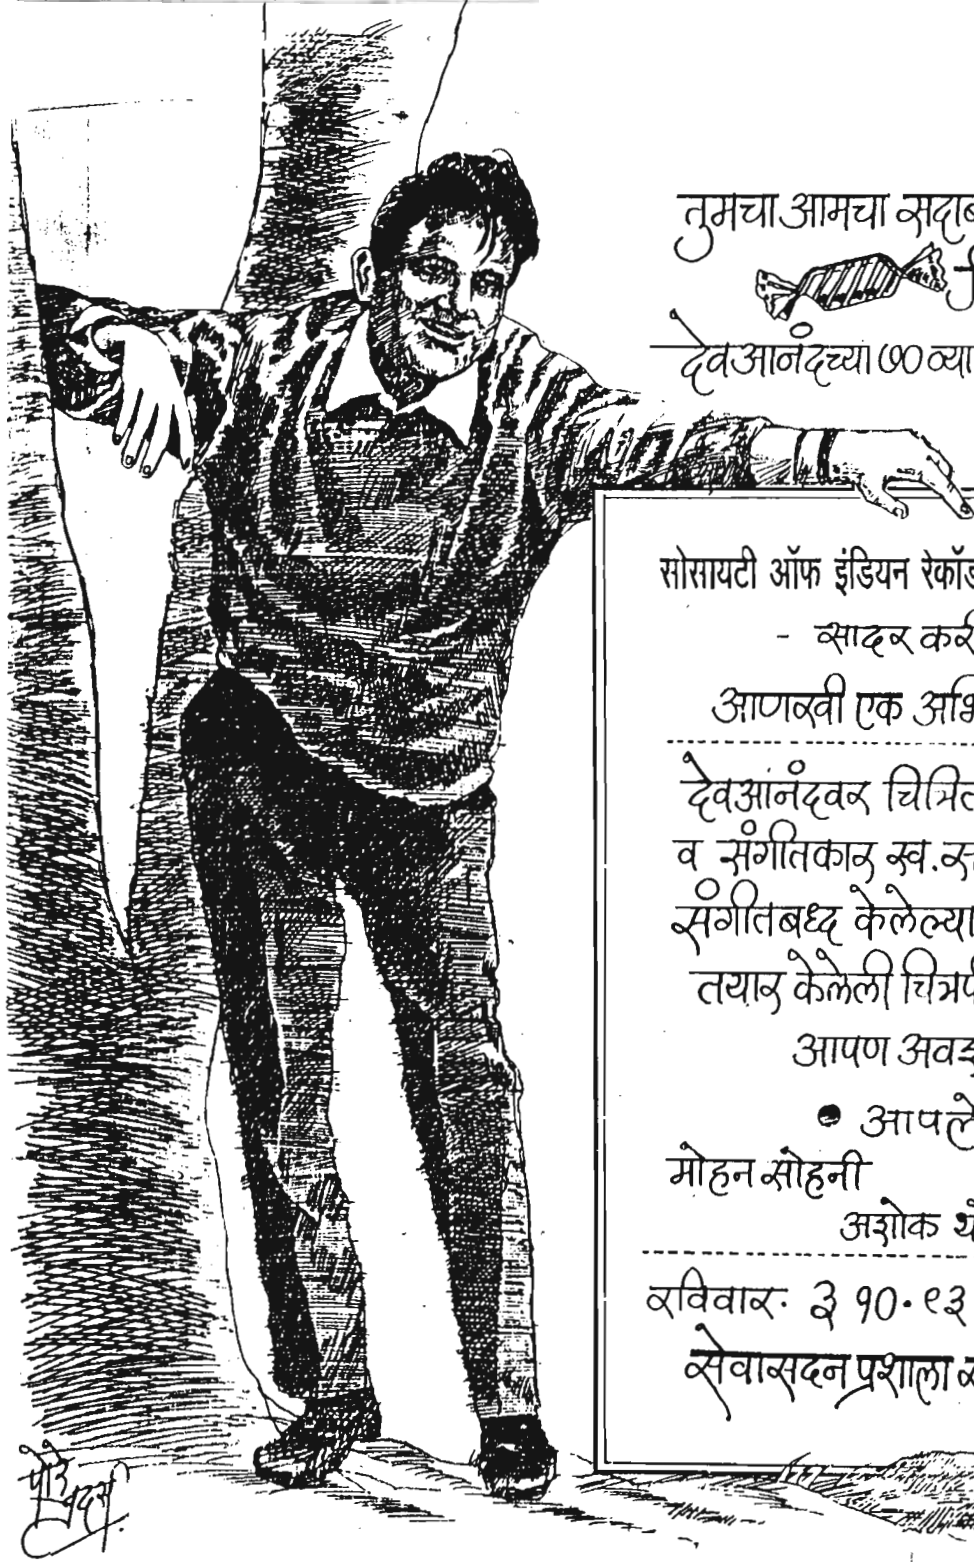 तुमचा आमचा सदाब
देवआनंदच्या ७० व्या
सोसायटी ऑफ इंडियन रेकॉर्ड
- सादर करी
आणखी एक अभि
देवआनंदवर चित्रित
व संगीतकार स्व. स
संगीतबध्द केलेल्या
तयार केलेली चित्रफ
आपण अवश्
• आपले
मोहन सोहनी
अशोक थ
रविवार. ३ १०.९३
सेवासदन प्रशाला स